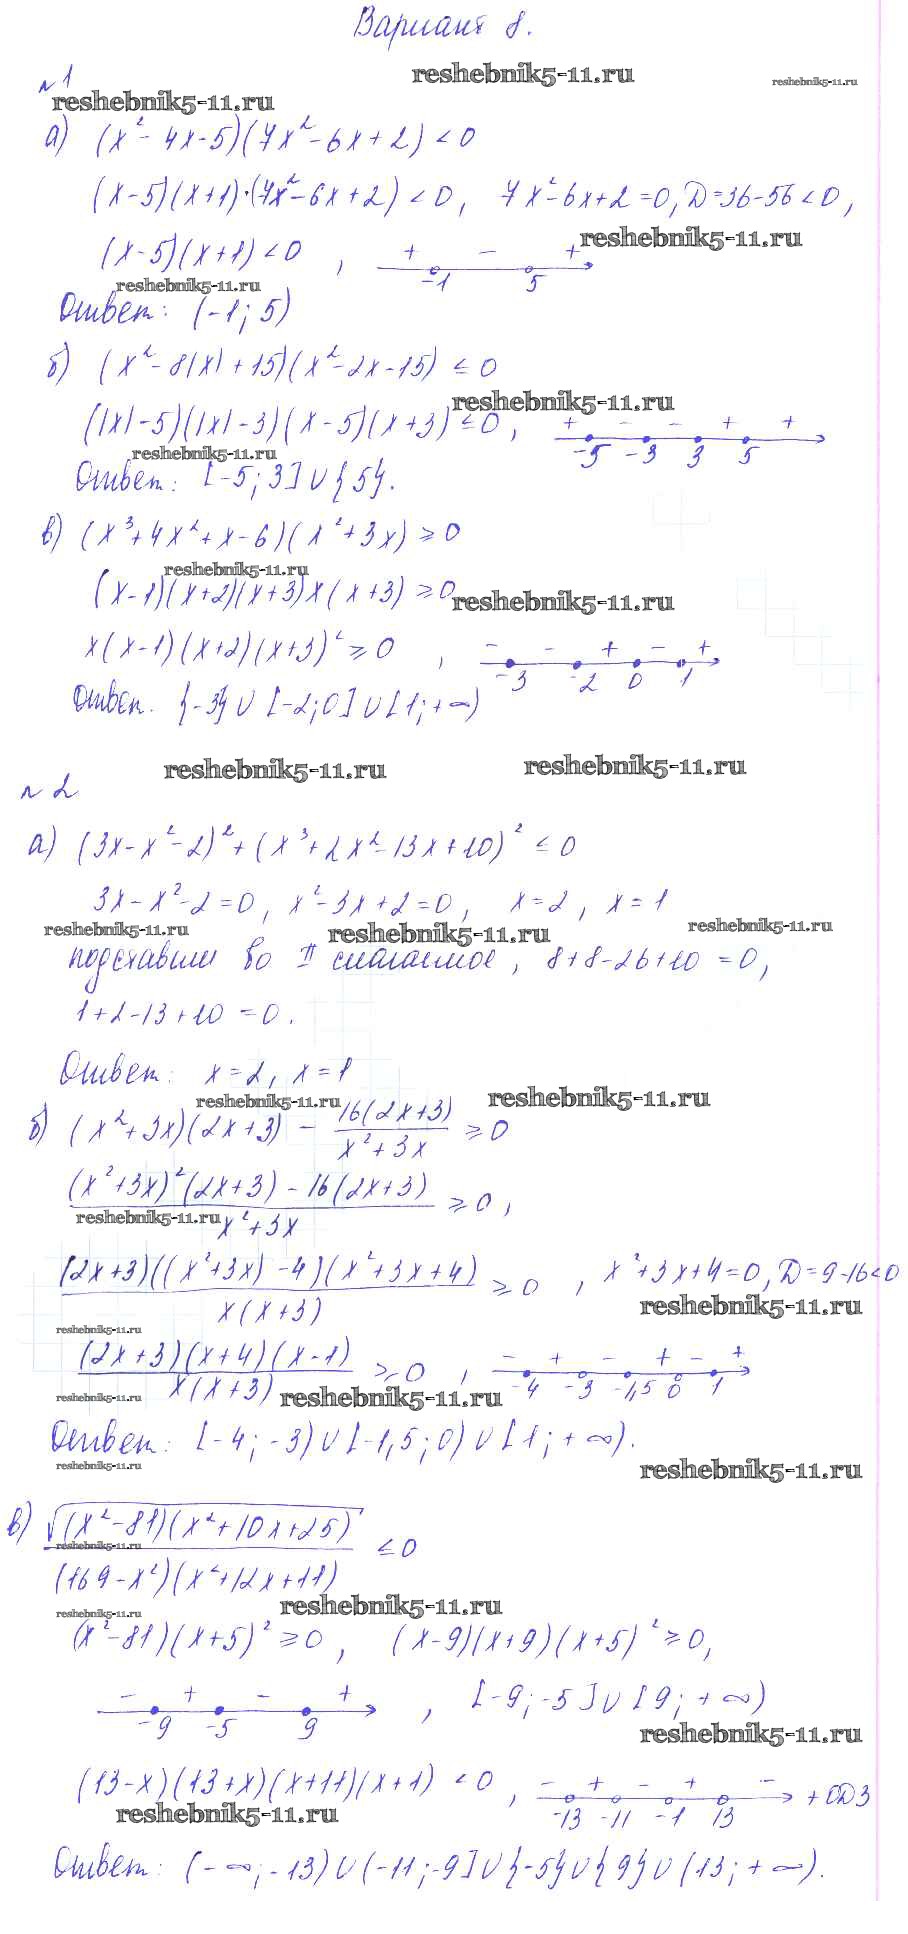 Вариант 8.
№1
reshebnik5-11.ru reshebnik5-11.ru
reshebnik5-11.ru
а) (x² - 4x - 5)(7x² - 6x + 2) < 0
(x - 5)(x + 1)·(7x² - 6x + 2) < 0, 7x² - 6x + 2 = 0, D = 36 - 56 < 0,
reshebnik5-11.ru
(x - 5)(x + 1) < 0 , + - + -1 5
reshebnik5-11.ru
Ответ: (-1; 5)
б) (x² - 8|x| + 15)(x² - 2x - 15) ≤ 0
reshebnik5-11.ru
(|x| - 5)(|x| - 3)(x - 5)(x + 3) ≤ 0, + - - + + -5 -3 3 5
reshebnik5-11.ru
Ответ: [-5; 3] ∪ {5}.
в) (x³ + 4x² + x - 6)(x² + 3x) ≥ 0
reshebnik5-11.ru
(x - 1)(x + 2)(x + 3)x(x + 3) ≥ 0
reshebnik5-11.ru
x(x - 1)(x + 2)(x + 3)² ≥ 0 , - - + - + -3 -2 0 1
Ответ. {-3} ∪ [-2; 0] ∪ [1; +∞)
reshebnik5-11.ru reshebnik5-11.ru
№2
а) (3x - x² - 2)² + (x³ + 2x² - 13x + 10)² ≤ 0
3x - x² - 2 = 0, x² - 3x + 2 = 0, x = 2, x = 1
reshebnik5-11.ru reshebnik5-11.ru reshebnik5-11.ru
подставим во II слагаемое, 8 + 8 - 26 + 10 = 0,
1 + 2 - 13 + 10 = 0.
Ответ: x = 2, x = 1
reshebnik5-11.ru reshebnik5-11.ru
б) (x² + 3x)(2x + 3) - 16(2x + 3) / x² + 3x ≥ 0
(x² + 3x)²(2x + 3) - 16(2x + 3) / x² + 3x ≥ 0,
reshebnik5-11.ru
(2x + 3)((x² + 3x) - 4)(x² + 3x + 4) / x(x + 3) ≥ 0 , x² + 3x + 4 = 0, D = 9 - 16 < 0
reshebnik5-11.ru
reshebnik5-11.ru
(2x + 3)(x + 4)(x - 1) / x(x + 3) ≥ 0 , - + - + - + -4 -3 -1,5 0 1
reshebnik5-11.ru reshebnik5-11.ru
Ответ: [-4; -3) ∪ [-1,5; 0) ∪ [1; +∞).
reshebnik5-11.ru reshebnik5-11.ru
в) √(x² - 81)(x² + 10x + 25) / (169 - x²)(x² + 12x + 11) ≤ 0
reshebnik5-11.ru
reshebnik5-11.ru reshebnik5-11.ru
(x² - 81)(x + 5)² ≥ 0, (x - 9)(x + 9)(x + 5)² ≥ 0,
- + - + -9 -5 9 , [-9; -5] ∪ [9; +∞)
reshebnik5-11.ru
(13 - x)(13 + x)(x + 11)(x + 1) < 0 , - + - + - -13 -11 -1 13 + ОДЗ
reshebnik5-11.ru
Ответ: (-∞; -13) ∪ (-11; -9] ∪ {-5} ∪ {9} ∪ (13; +∞).